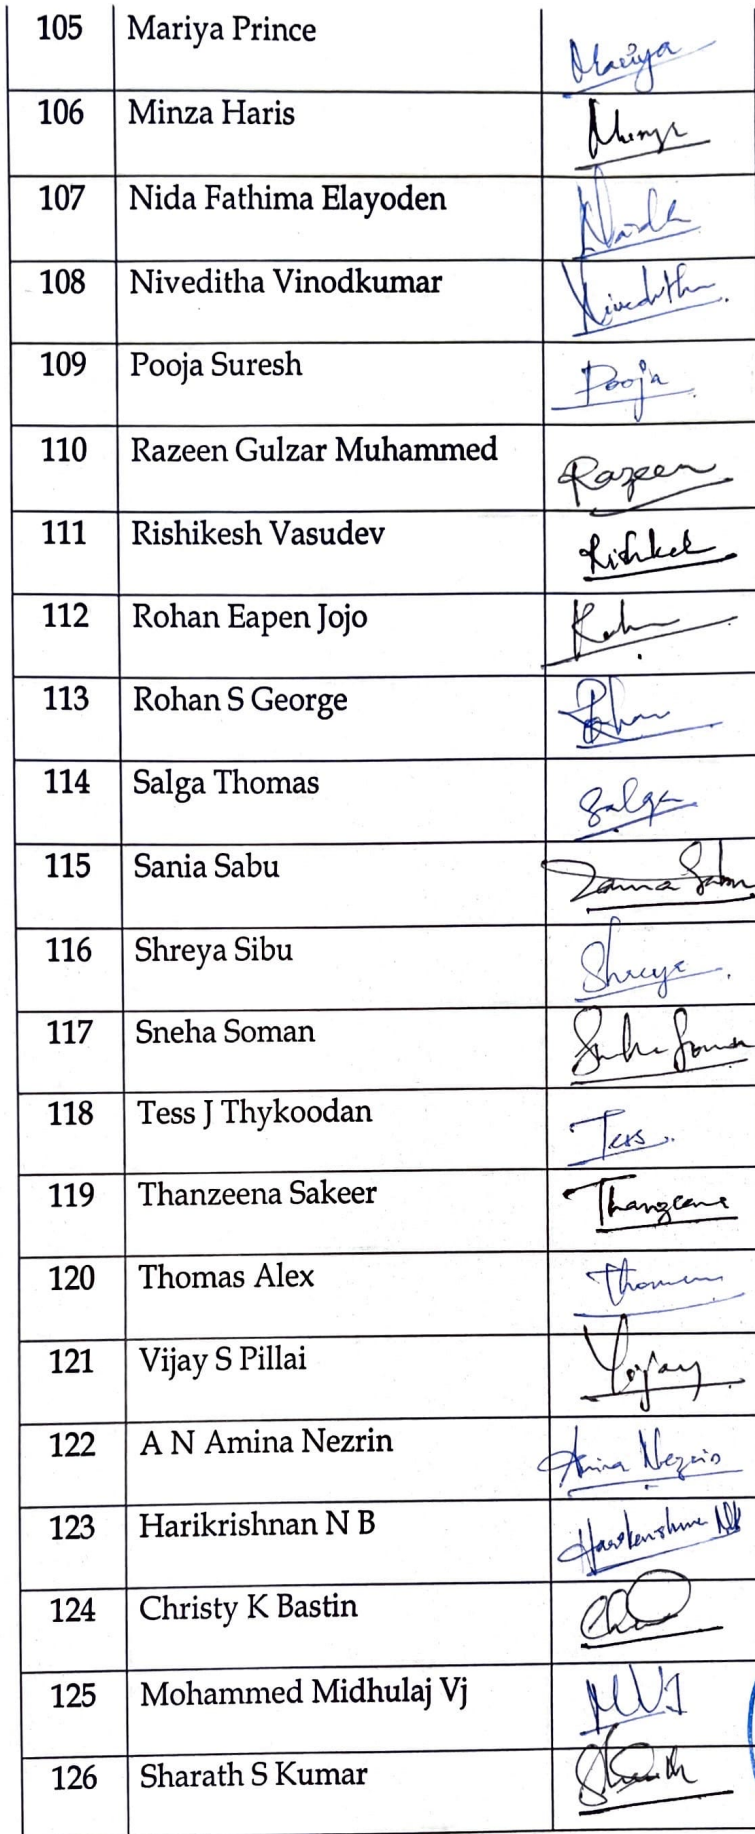 105 Mariya Prince Mariya
106 Minza Haris Minza
107 Nida Fathima Elayoden Nida
108 Niveditha Vinodkumar Niveditha
109 Pooja Suresh Pooja
110 Razeen Gulzar Muhammed Razeen
111 Rishikesh Vasudev
112 Rohan Eapen Jojo
113 Rohan S George Rohan
114 Salga Thomas Salga
115 Sania Sabu Sania Sabu
116 Shreya Sibu Shreya
117 Sneha Soman Sneha Soman
118 Tess J Thykoodan Tess
119 Thanzeena Sakeer Thanzeena
120 Thomas Alex Thomas
121 Vijay S Pillai Vijay
122 A N Amina Nezrin Amina Nezrin
123 Harikrishnan N B
124 Christy K Bastin
125 Mohammed Midhulaj Vj MVJ
126 Sharath S Kumar